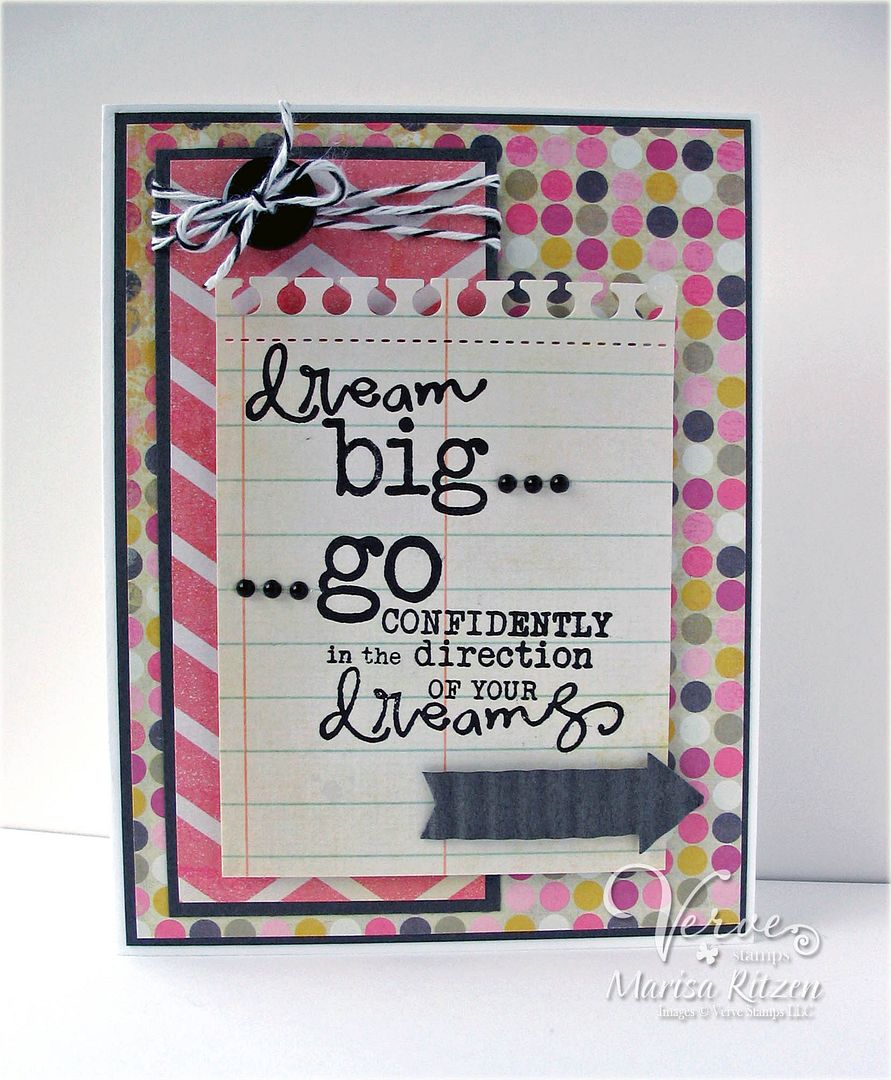 dream
big...
...go
CONFIDENTLY
in the direction
OF YOUR
dreams
Verve
stamps
Marisa Ritzen
Images © Verve Stamps LLC